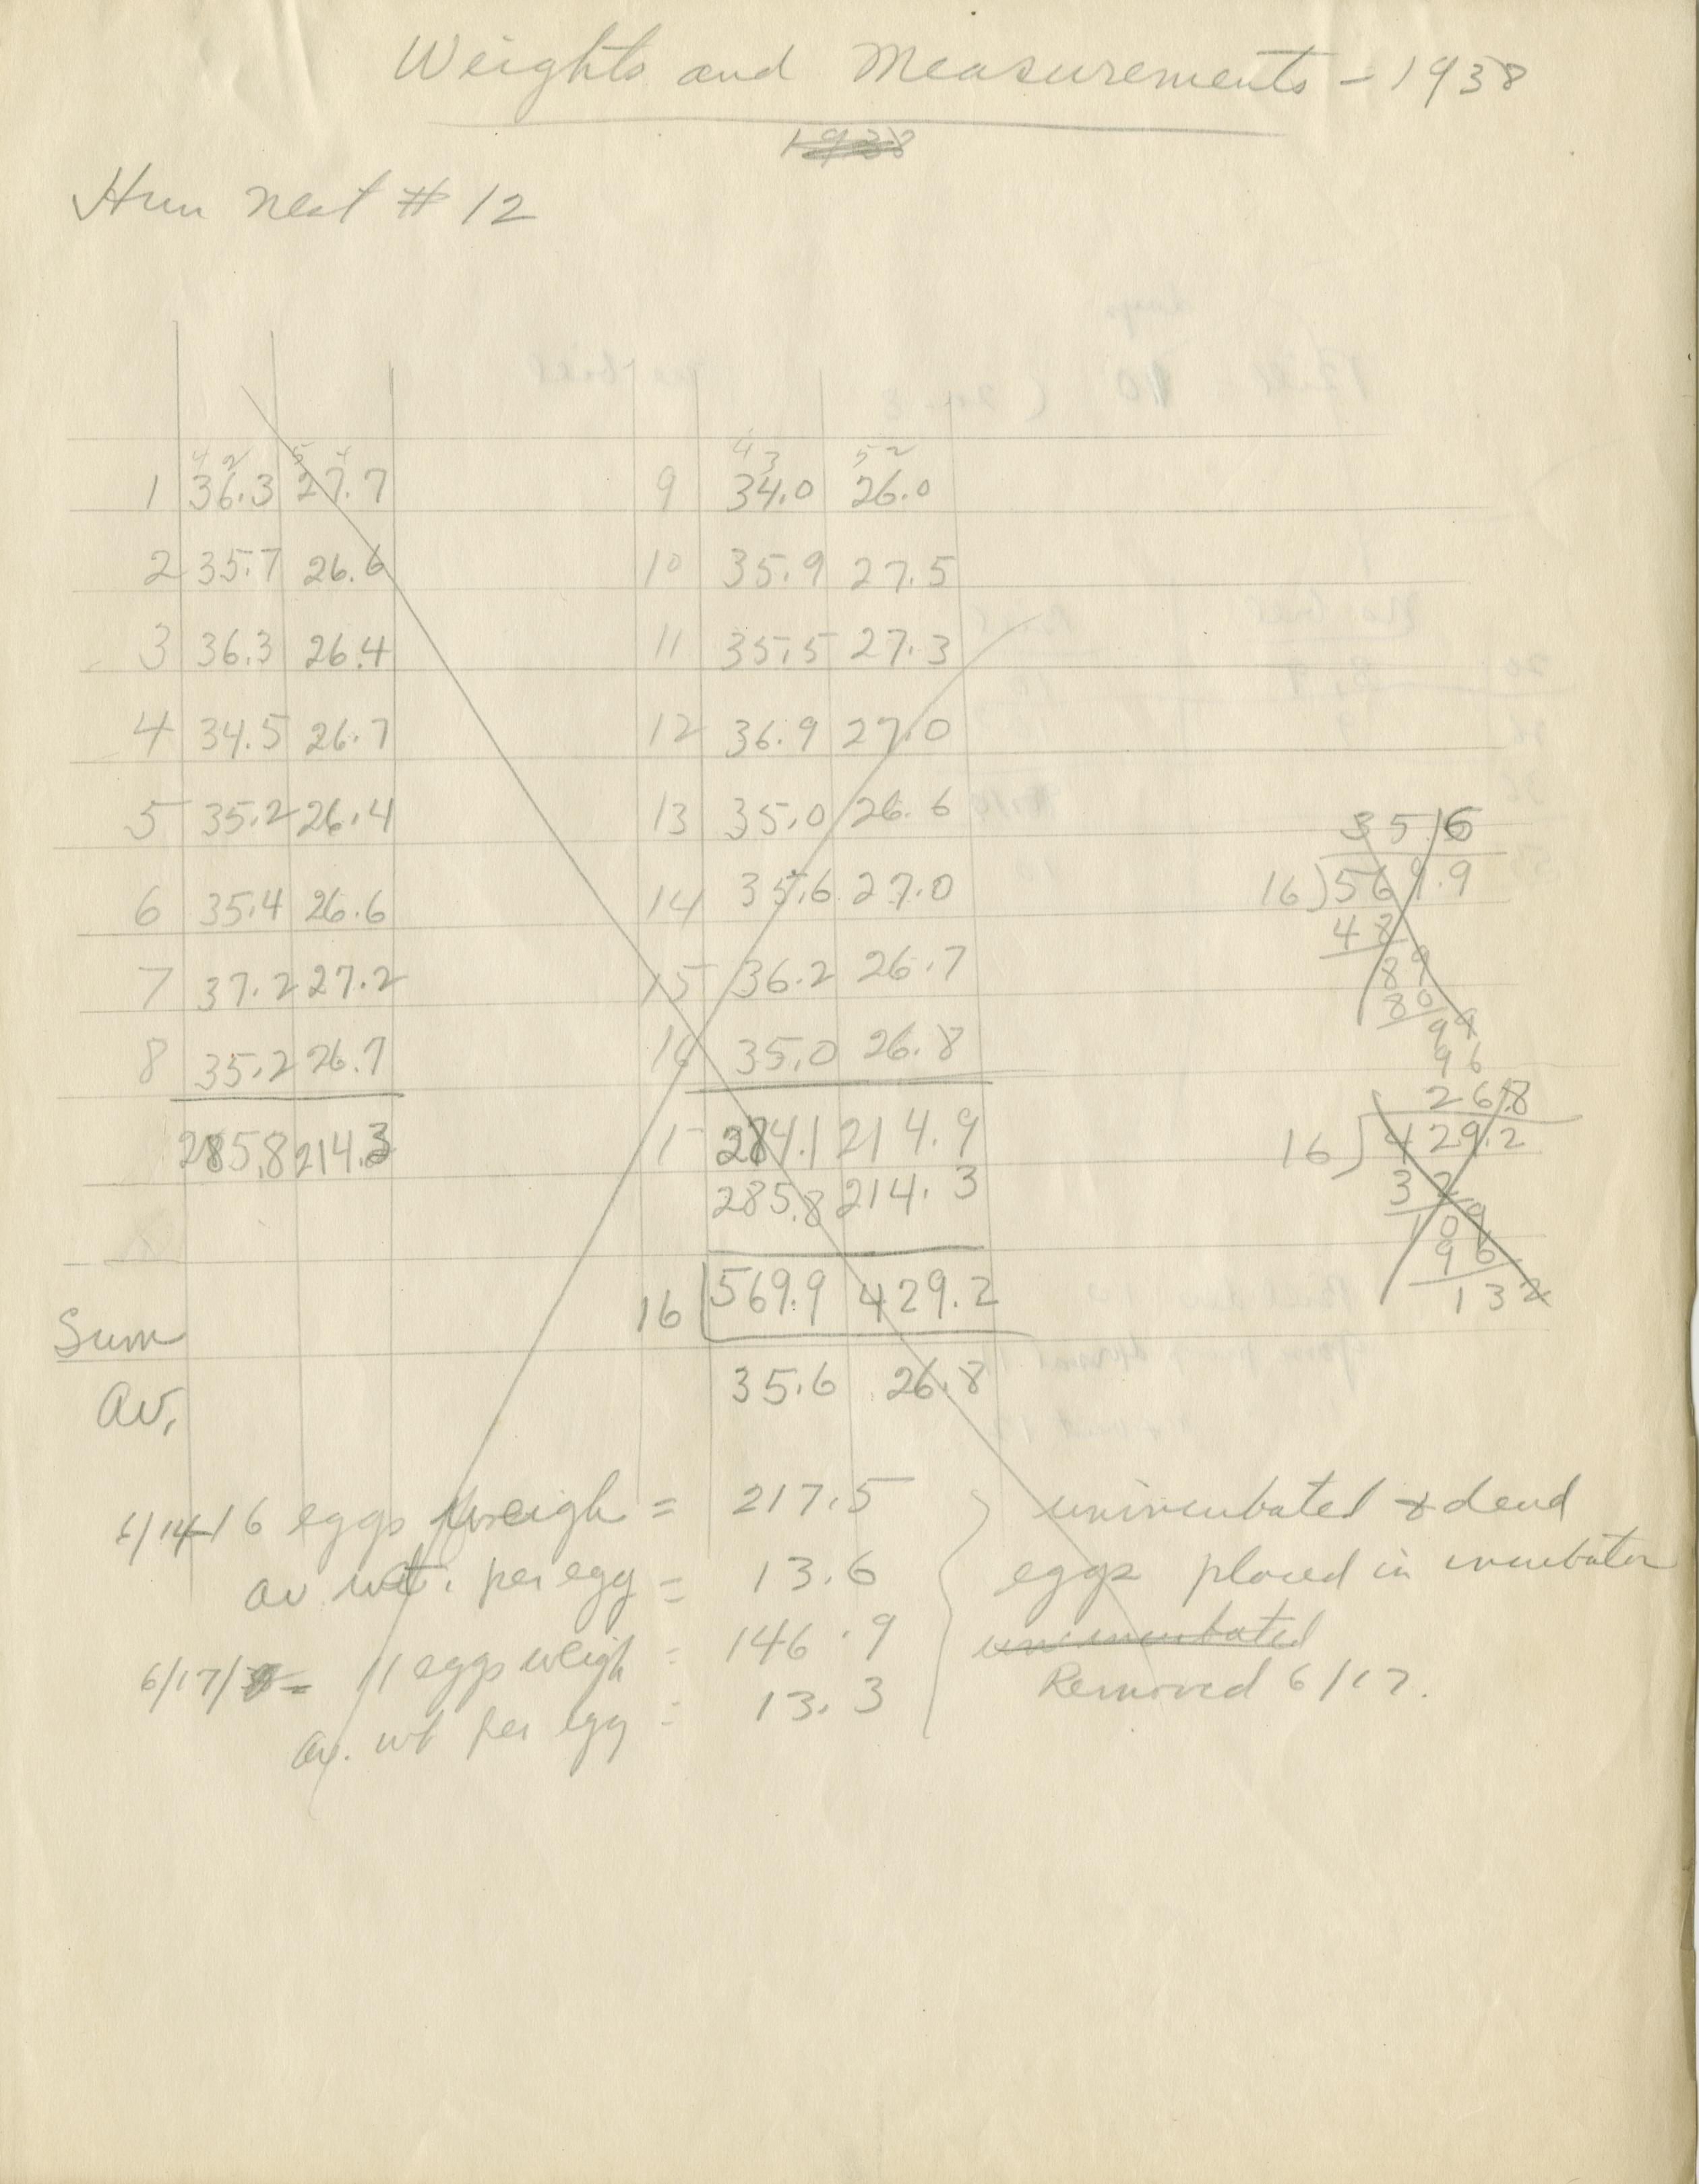 Weights and Measurements - 1938
1938
Hun nest # 12
4 2 5 4 4 3 5 2
1 36.3 27.7 9 34.0 26.0
2 35.7 26.6 10 35.9 27.5
3 36.3 26.4 11 35.5 27.3
4 34.5 26.7 12 36.9 27.0
5 35.2 26.4 13 35.0 26.6
6 35.4 26.6 14 35.6 27.0
7 37.2 27.2 15 36.2 26.7
8 35.2 26.7 16 35.0 26.8
285.8 214.3 1 284.1 214.9
285.8 214.3
16 569.9 429.2
Sum
35.6 26.8
Av.
35.6
16)569.9
48
89
80
99
96
26.8
16)429.2
32
109
96
132
6/14-16 eggs weigh = 217.5 unincubated & dead
av wt. per egg = 13.6 eggs placed in incubator
6/17/ = 11 eggs weigh = 146.9 unincubated
av. wt per egg = 13.3 Removed 6/17.